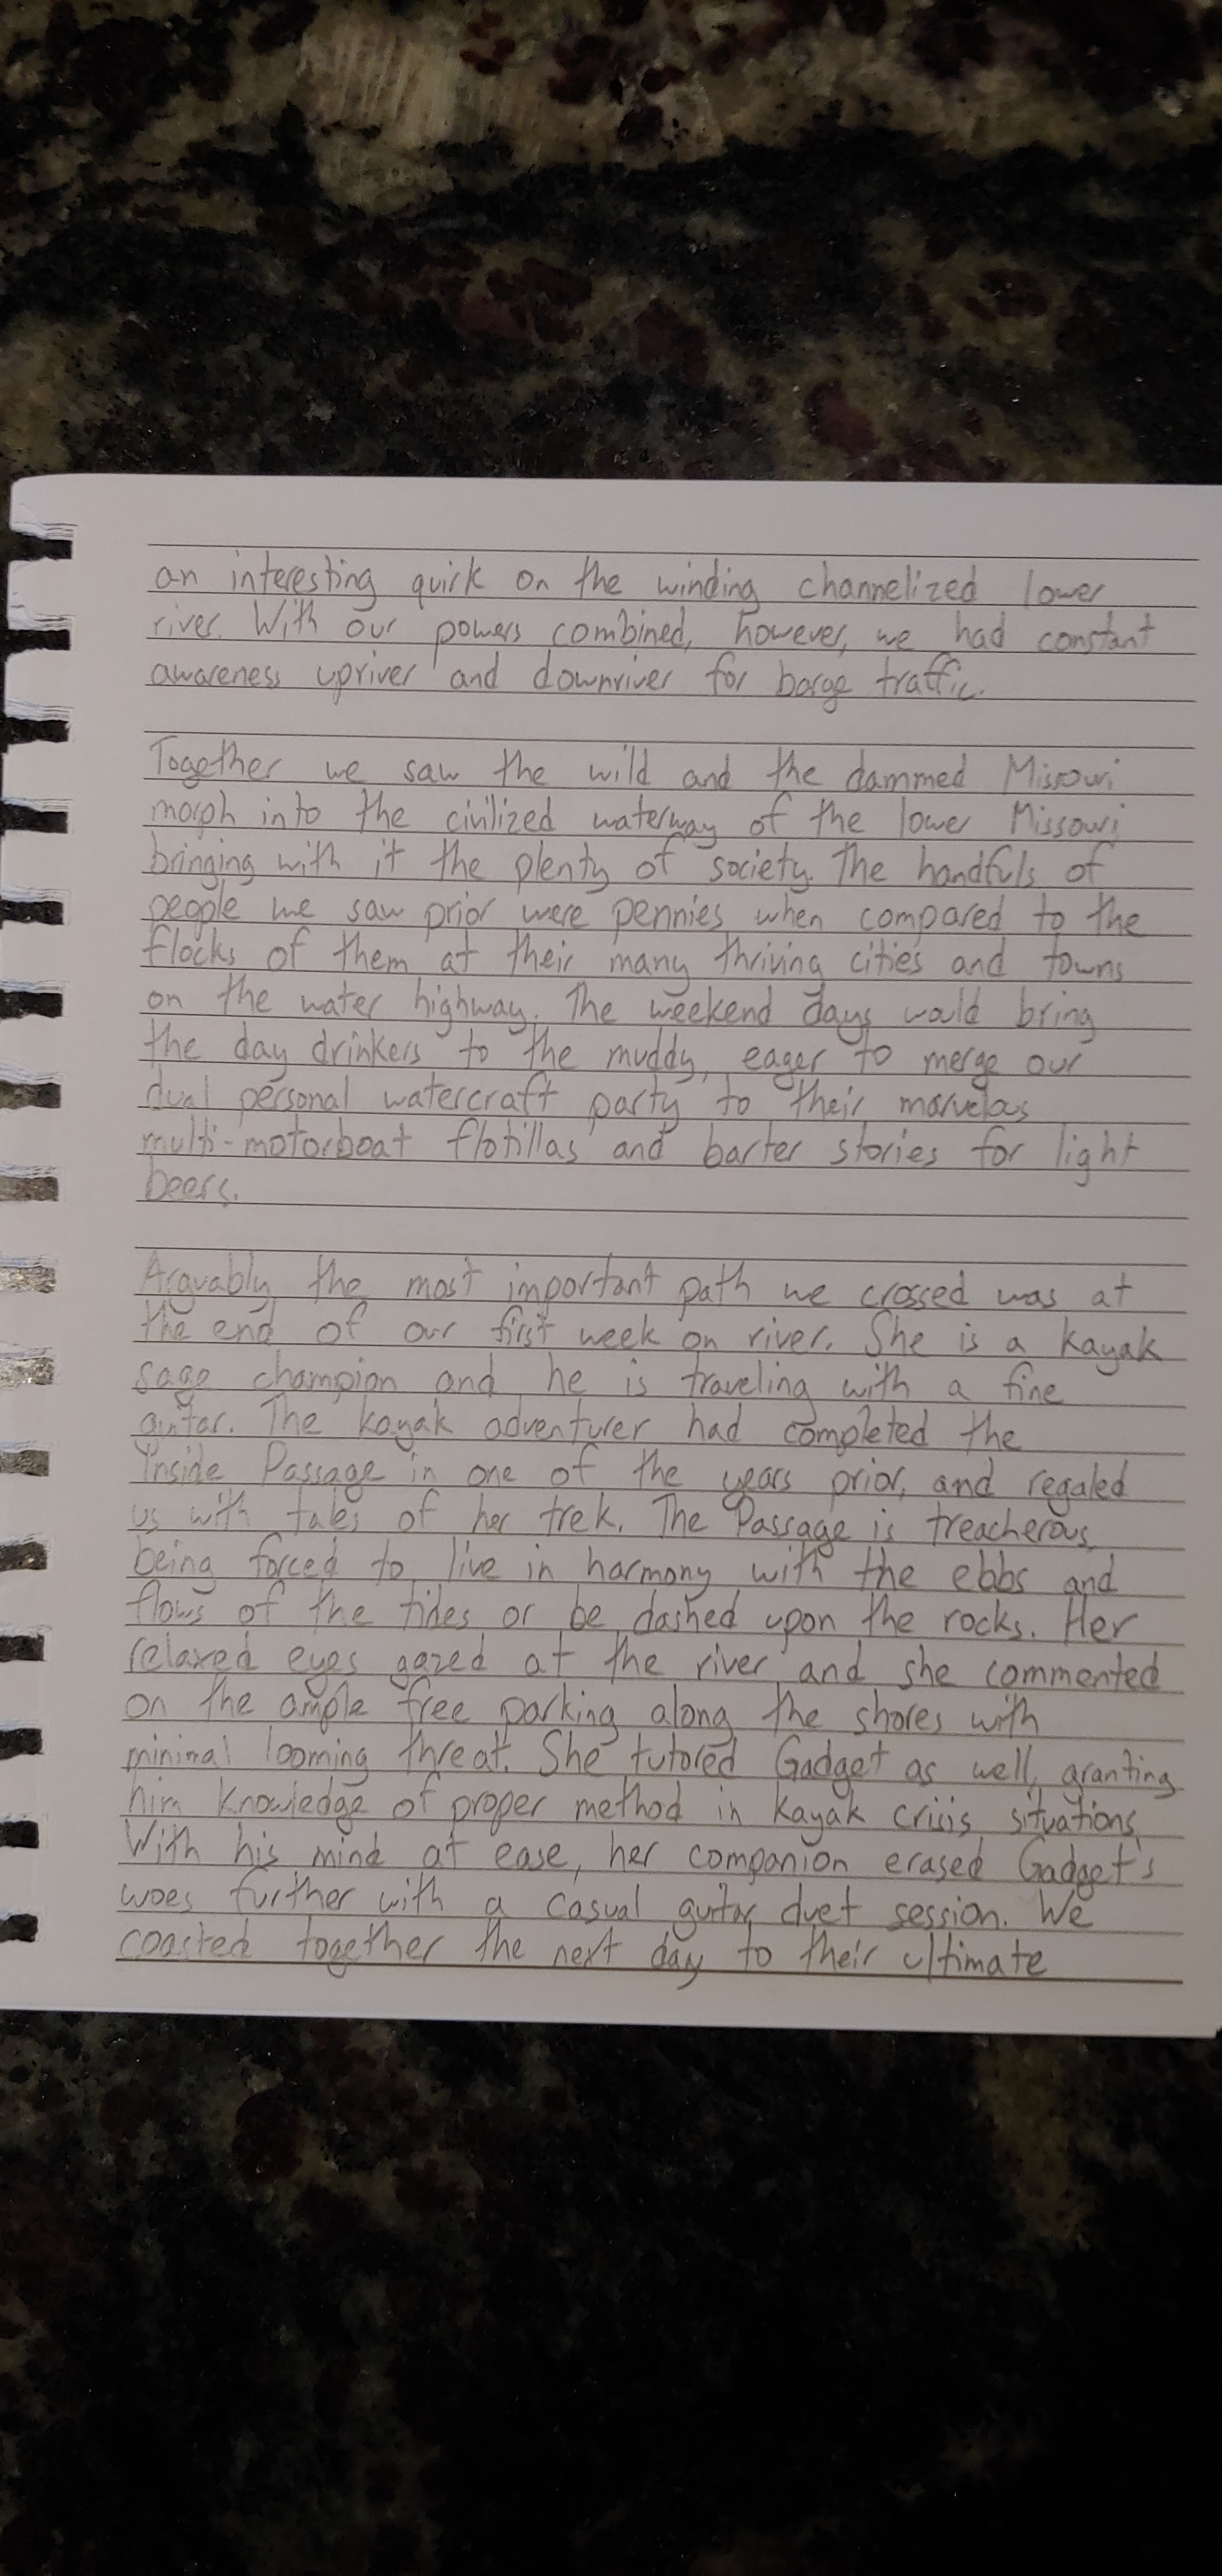 an interesting quirk on the winding channelized lower
river. With our powers combined, however, we had constant
awareness upriver and downriver for barge traffic.
Together we saw the wild and the dammed Missouri
morph into the civilized waterway of the lower Missouri
bringing with it the plenty of society. The handfuls of
people we saw prior were pennies when compared to the
flocks of them at their many thriving cities and towns
on the water highway. The weekend days would bring
the day drinkers to the muddy, eager to merge our
dual personal watercraft party to their marvelous
multi-motorboat flotillas and barter stories for light
beers.
Arguably the most important path we crossed was at
the end of our first week on river. She is a kayak
sage champion and he is traveling with a fine
guitar. The kayak adventurer had completed the
Inside Passage in one of the years prior, and regaled
us with tales of her trek. The Passage is treacherous,
being forced to live in harmony with the ebbs and
flows of the tides or be dashed upon the rocks. Her
relaxed eyes gazed at the river and she commented
on the ample free parking along the shores with
minimal looming threat. She tutored Gadget as well, granting
him knowledge of proper method in kayak crisis situations.
With his mind at ease, her companion erased Gadget's
woes further with a casual guitar duet session. We
coasted together the next day to their ultimate